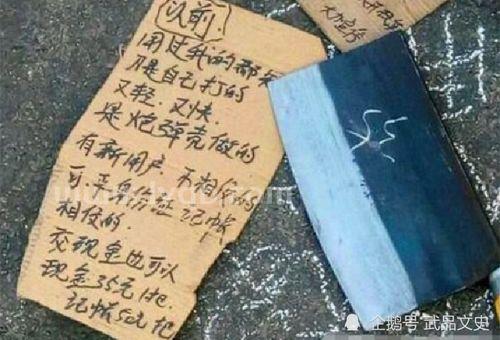 以前
用过我的都知
刀是自己打的
又轻.又快.
是炮弹壳做的
有新用户.不相信的
可凭身份证记帐
相信的.
交现金也可以
现金35元1把.
记帐50元把
企鹅号 武品文史